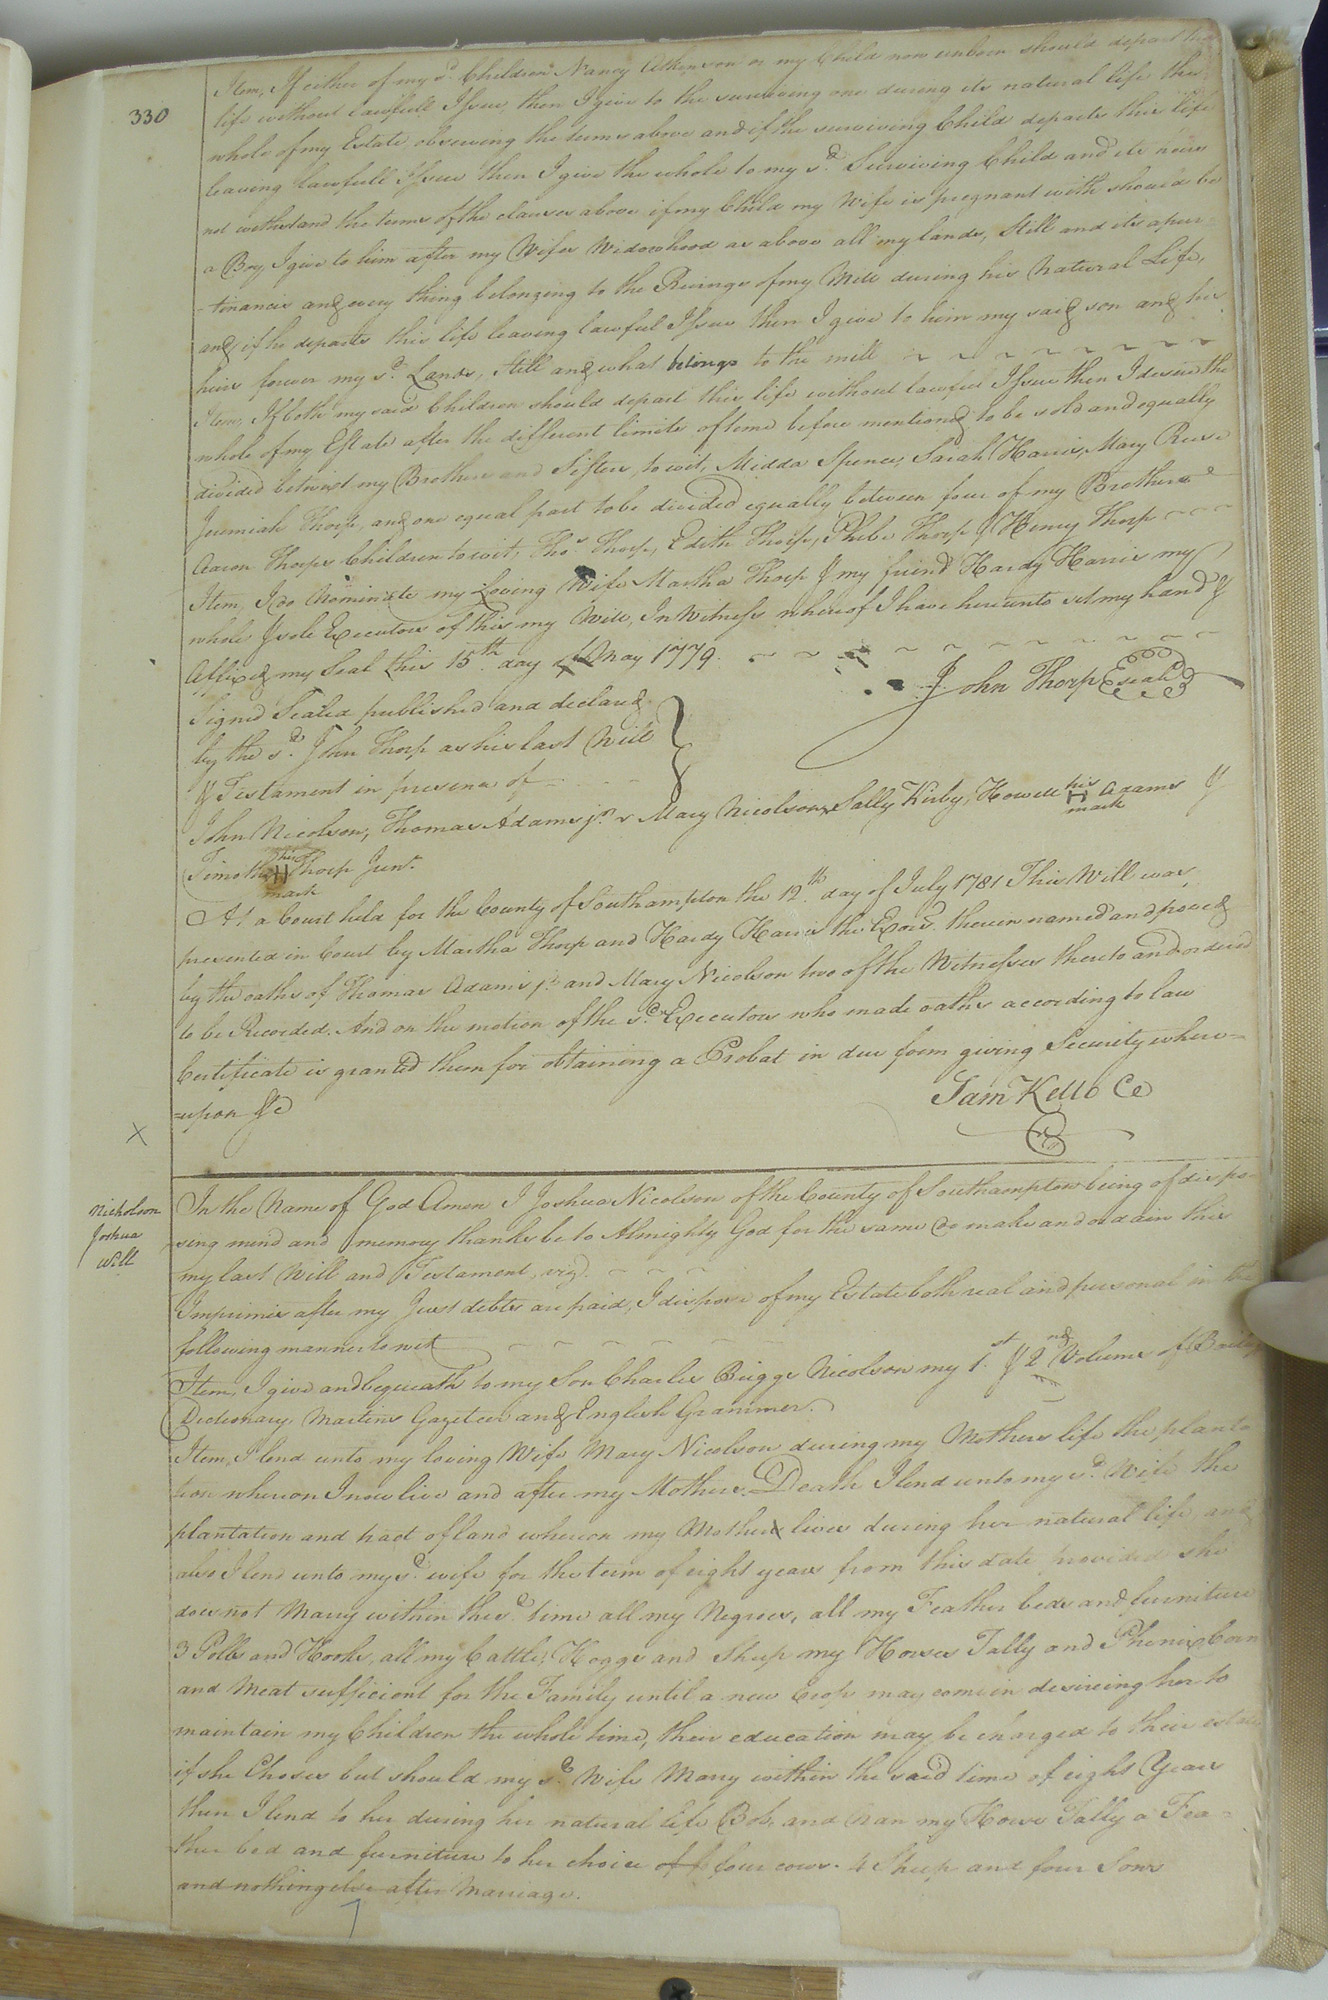 330
Item, If either of my sd. Children Nancy Atkinson or my Child now unborn should depart this
life without lawfull Issue then I give to the surviving one during its natural life the
whole of my Estate observing the terms above and if the surviving Child departs this life
leaving lawfull Issue then I give the whole to my sd. Surviving Child and its heirs
not withstand the terms of the clauses above if my Child my Wife is pregnant with should be
a Boy, I give to him after my Wifes Widowhood as above all my lands, Still and its apur=
=tinances and every thing belonging to the of my Mill during his Natural Life,
and if he departs this life leaving lawful Issue then I give to him my said son and his
heirs forever my sd. Lands, Still and what belongs to the mill
Item, If both my said Children should depart this life without lawful Issue then I desire the
whole of my Estate after the different limits of time before mentioned to be sold and equally
divided betwext my Brothers and Sisters, to wit, Midda Spence, Sarah Harris, Mary Reese
Jeremiah Thorp, and one equal part to be divided equally between four of my Brothers
Aaron Thorps Children to wit, Thos. Thorp, Edith Thorp, Phebe Thorp & Henry Thorp
Item, I do Nominate my Loving Wife Martha Thorp & my friend Hardy Harris my
whole & sole Executors of this my Will, In Witness whereof I have here unto set my hand &
Affixed my Seal this 15th. day of May 1779.
John Thorp (Seal)
Signed Sealed published and declared
by the sd. John Thorp as his last Will
& Testament in presence of
John Nicolson, Thomas Adams jr. Mary Nicolson, Sally Kirby, Howell his H mark Adams &
Timothy his H mark Thorp Junr.
At a Court held for the County of Southampton the 12th. day of July 1781 This Will was
presented in Court by Martha Thorp and Hardy Harris the Exors. therein named and proved
by the oaths of Thomas Adams jr. and Mary Nicolson two of the Witnesses thereto and ordered
to be Recorded. And on the motion of the sd. Executors who made oaths according to law
Certificate is granted them for obtaining a Probat in due form giving Security where=
=upon &c
Sam Kello CC
X
Nicholson
Joshua
Will
In the Name of God Amen I Joshua Nicolson of the County of Southampton being of dispo=
sing mind and memory thanks be to Almighty God for the same do make and ordain this
my last Will and Testament, viz.
Imprimis after my Just debts are paid, I dispose of my Estate both real and personal in the
following manner to wit
Item, I give and bequeath to my Son Charles Briggs Nicolson my 1st. & 2nd Volume of Baileys
Dictionary, Martins Gazeteer and English Grammer.
Item, I lend unto my loving Wife Mary Nicolson during my Mothers life the planta
tion whereon I now live and after my Mothers Death I lend unto my sd. Wife the
plantation and tract of land whereon my Mother lives during her natural life and
also I lend unto my sd. wife for the term of eight years from this date provided she
does not Marry within the sd. time all my Negroes, all my Feather beds and furniture
3 Potts and Hooks, all my Cattle, Hoggs and Sheep my Horses Tally and Phenix, Corn
and Meat sufficient for the Family until a new Crop may come in desireing her to
maintain my Children the whole time, their education may be charged to their estate
if she Choses but should my sd. Wife Marry within the said time of eight Years
then I lend to her during her natural life Bob, and Nan my Horse Tally a Fea=
ther bed and furniture to her choice of four cows. 4 Sheep and four Sows
and nothing else after Marriage.